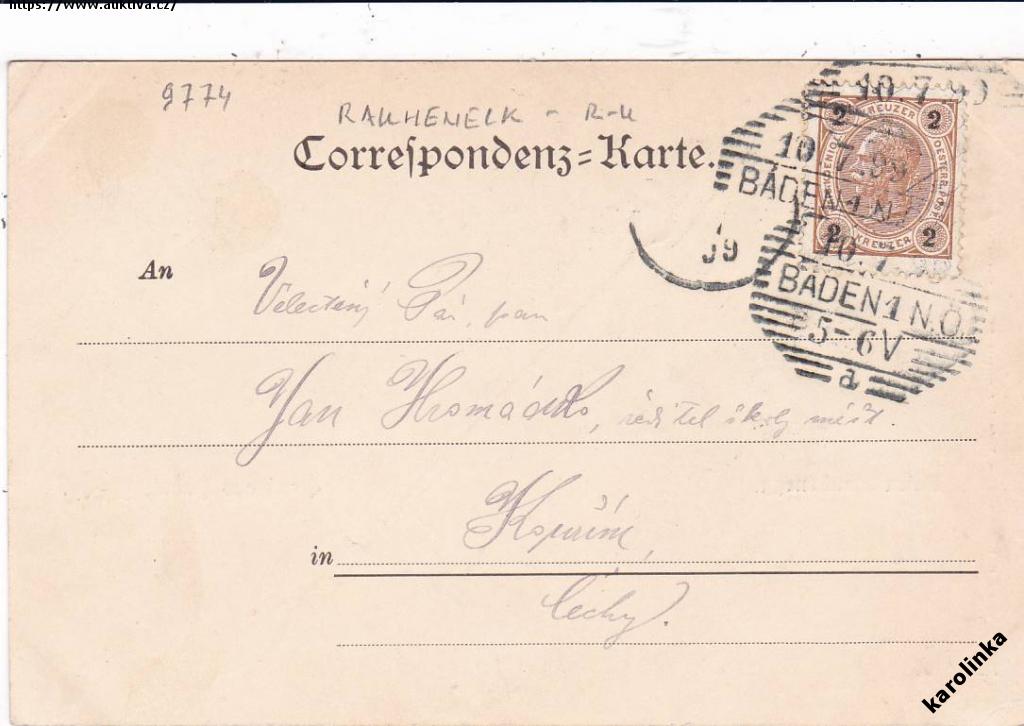 https://www.auktiva.cz/
9774
RAUHENECK - R-U
Correſpondenz=Karte.
10 7 99
2 KREUZER 2
OESTERR. POST
2 KREUZER 2
10 7 99
BADEN 1 N.
99
10. 7
BADEN 1 N.Ö.
5-6V
a
An
Velectěný Pán, pan
Jan Hromádko, ředitel školy měšť.
in
Kouřim,
Čechy.
karolinka